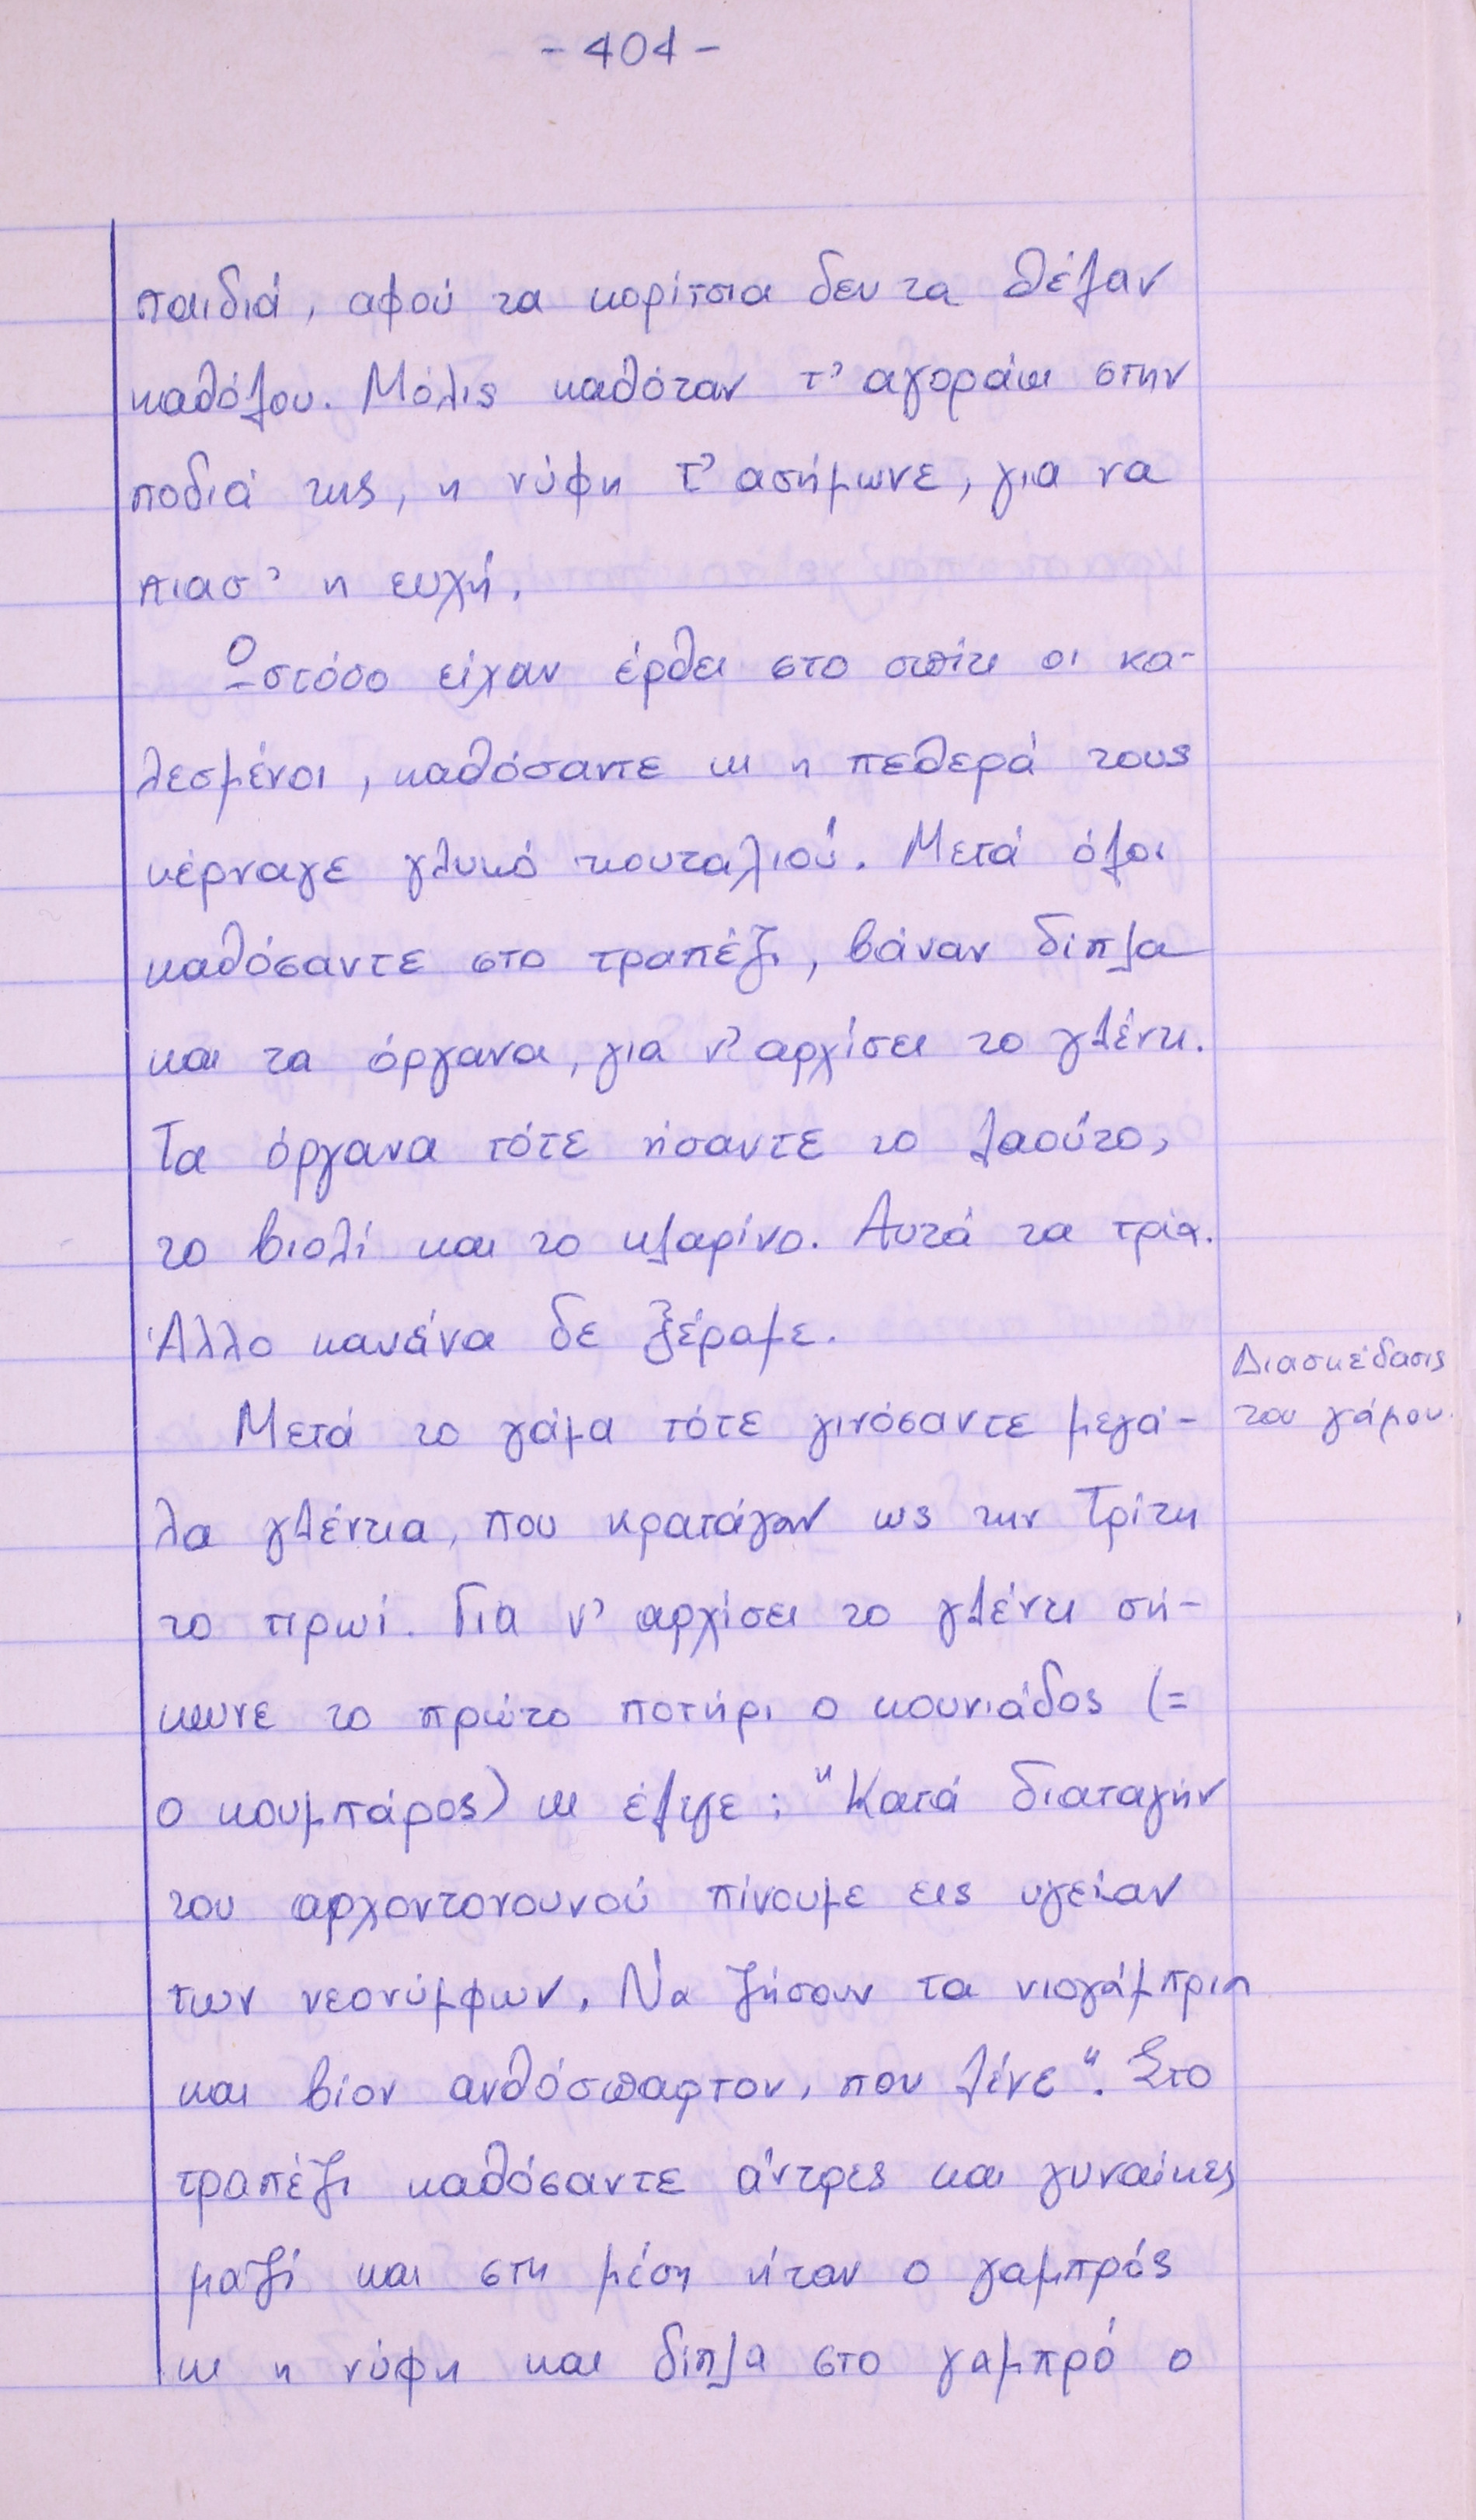 - 404 -
παιδιά, αφού τα κορίτσια δεν τα θέλαν
καθόλου. Μόλις καθόταν τ' αγοράκι στην
ποδιά της, η νύφη τ' ασήμωνε, για να
πιασ' η ευχή.
Ωστόσο είχαν έρθει στο σπίτι οι κα-
λεσμένοι, καθόσαντε κι η πεθερά τους
κέρναγε γλυκό κουταλιού. Μετά όλοι
καθόσαντε στο τραπέζι, βάναν δίπλα
και τα όργανα, για ν' αρχίσει το γλέντι.
Τα όργανα τότε ήσαντε το λαούτο,
το βιολί και το κλαρίνο. Αυτά τα τρία.
Άλλο κανένα δε ξέραμε.
Διασκέδασις
του γάμου.
Μετά το γάμα τότε γινόσαντε μεγά-
λα γλέντια, που κρατάγαν ως την Τρίτη
το πρωί. Για ν' αρχίσει το γλέντι σή-
κωνε το πρώτο ποτήρι ο κουνιάδος (=
ο κουμπάρος) κι έλεγε: "Κατά διαταγήν
του αρχοντονουνού πίνουμε εις υγείαν
των νεονύμφων. Να ζήσουν τα νιογάμπρια
και βίον ανθόσπαρτον, που λένε". Στο
τραπέζι καθόσαντε άντρες και γυναίκες
μαζί και στη μέση ήταν ο γαμπρός
κι η νύφη και δίπλα στο γαμπρό ο